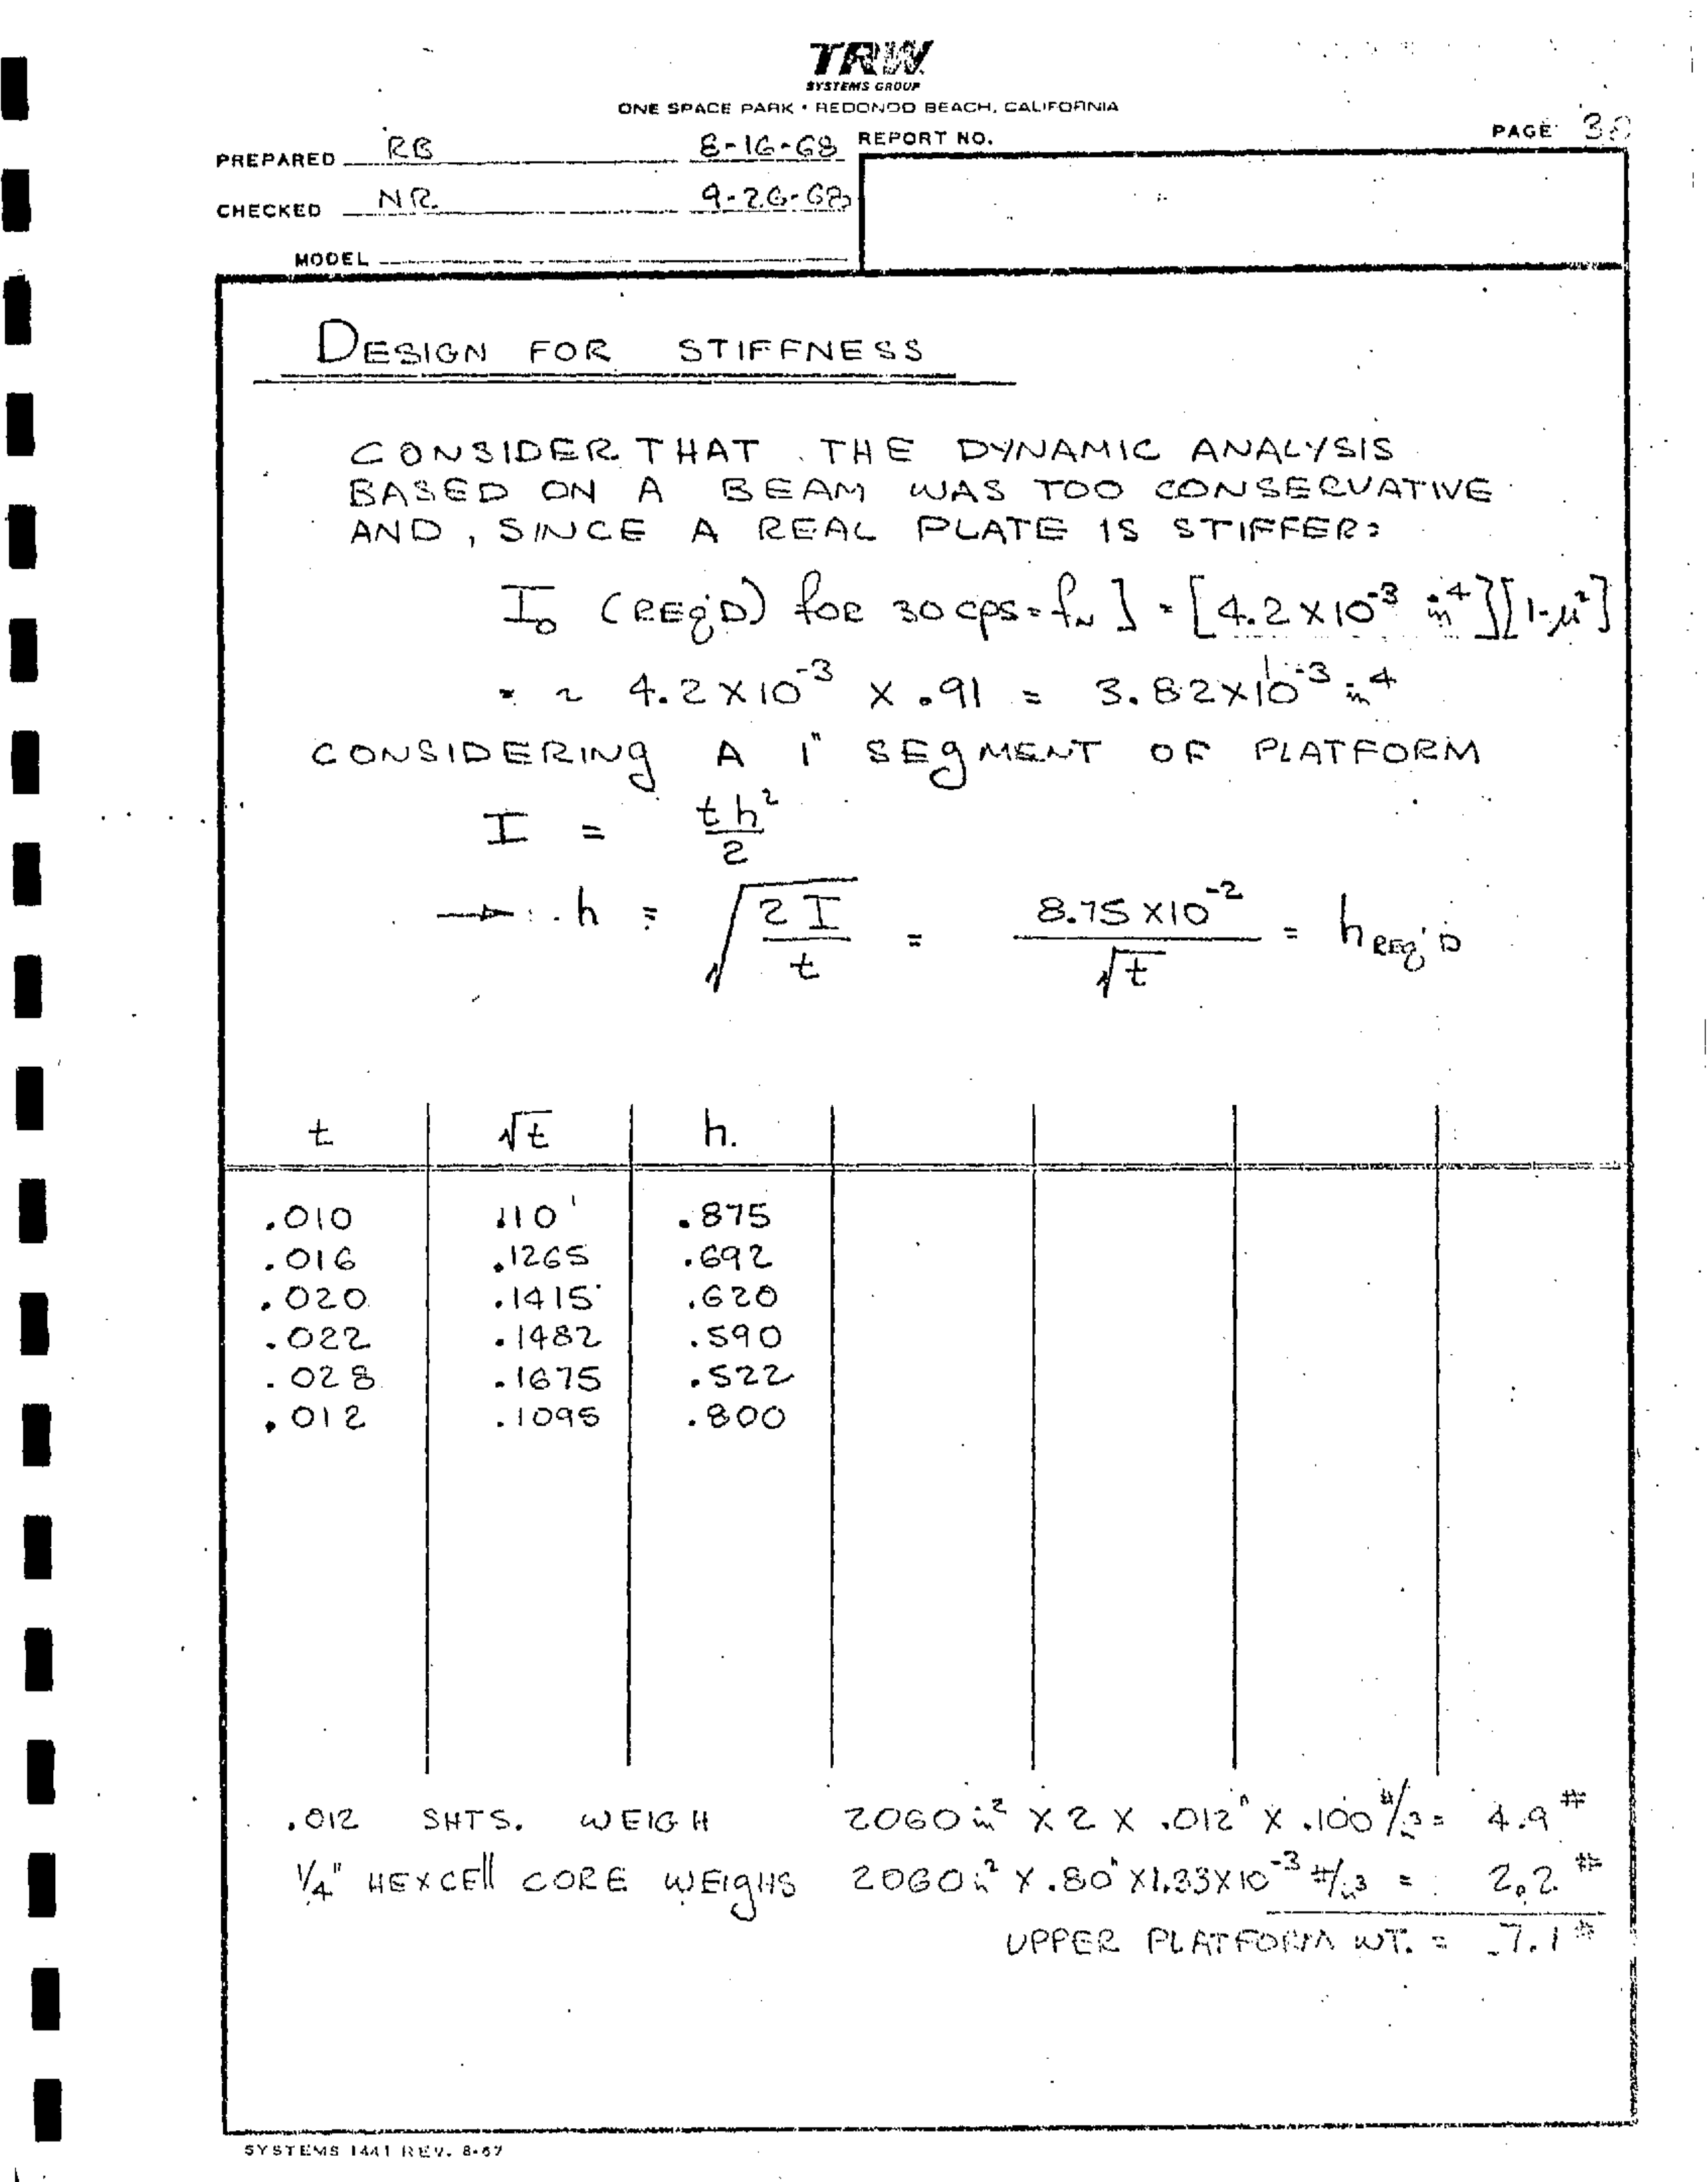 TRW
SYSTEMS GROUP
ONE SPACE PARK • REDONDO BEACH, CALIFORNIA
PAGE
PREPARED RB 8-16-68 REPORT NO.
CHECKED NR 9-26-68
MODEL
DESIGN FOR STIFFNESS
CONSIDER THAT THE DYNAMIC ANALYSIS
BASED ON A BEAM WAS TOO CONSERVATIVE
AND, SINCE A REAL PLATE IS STIFFER:
I₀ (REQ'D) for 30 cps = fₙ ] = [4.2 × 10⁻³ in⁴][1-μ²]
= ~ 4.2 × 10⁻³ × .91 = 3.82 × 10⁻³ in⁴
CONSIDERING A 1" SEGMENT OF PLATFORM
I = th²/2
→ h = √(2I/t) = 8.75 × 10⁻²/√t = h REQ'D
t √t h.
.010 .10 .875
.016 .1265 .692
.020 .1415 .620
.022 .1482 .590
.028 .1675 .522
.012 .1095 .800
.012 SHTS. WEIGH 2060 in² × 2 × .012" × .100 #/in³ = 4.9#
1/4" HEXCELL CORE WEIGHS 2060 in² × .80" × 1.33 × 10⁻³ #/in³ = 2.2#
UPPER PLATFORM WT. = 7.1#
SYSTEMS 1441 REV. 8-67